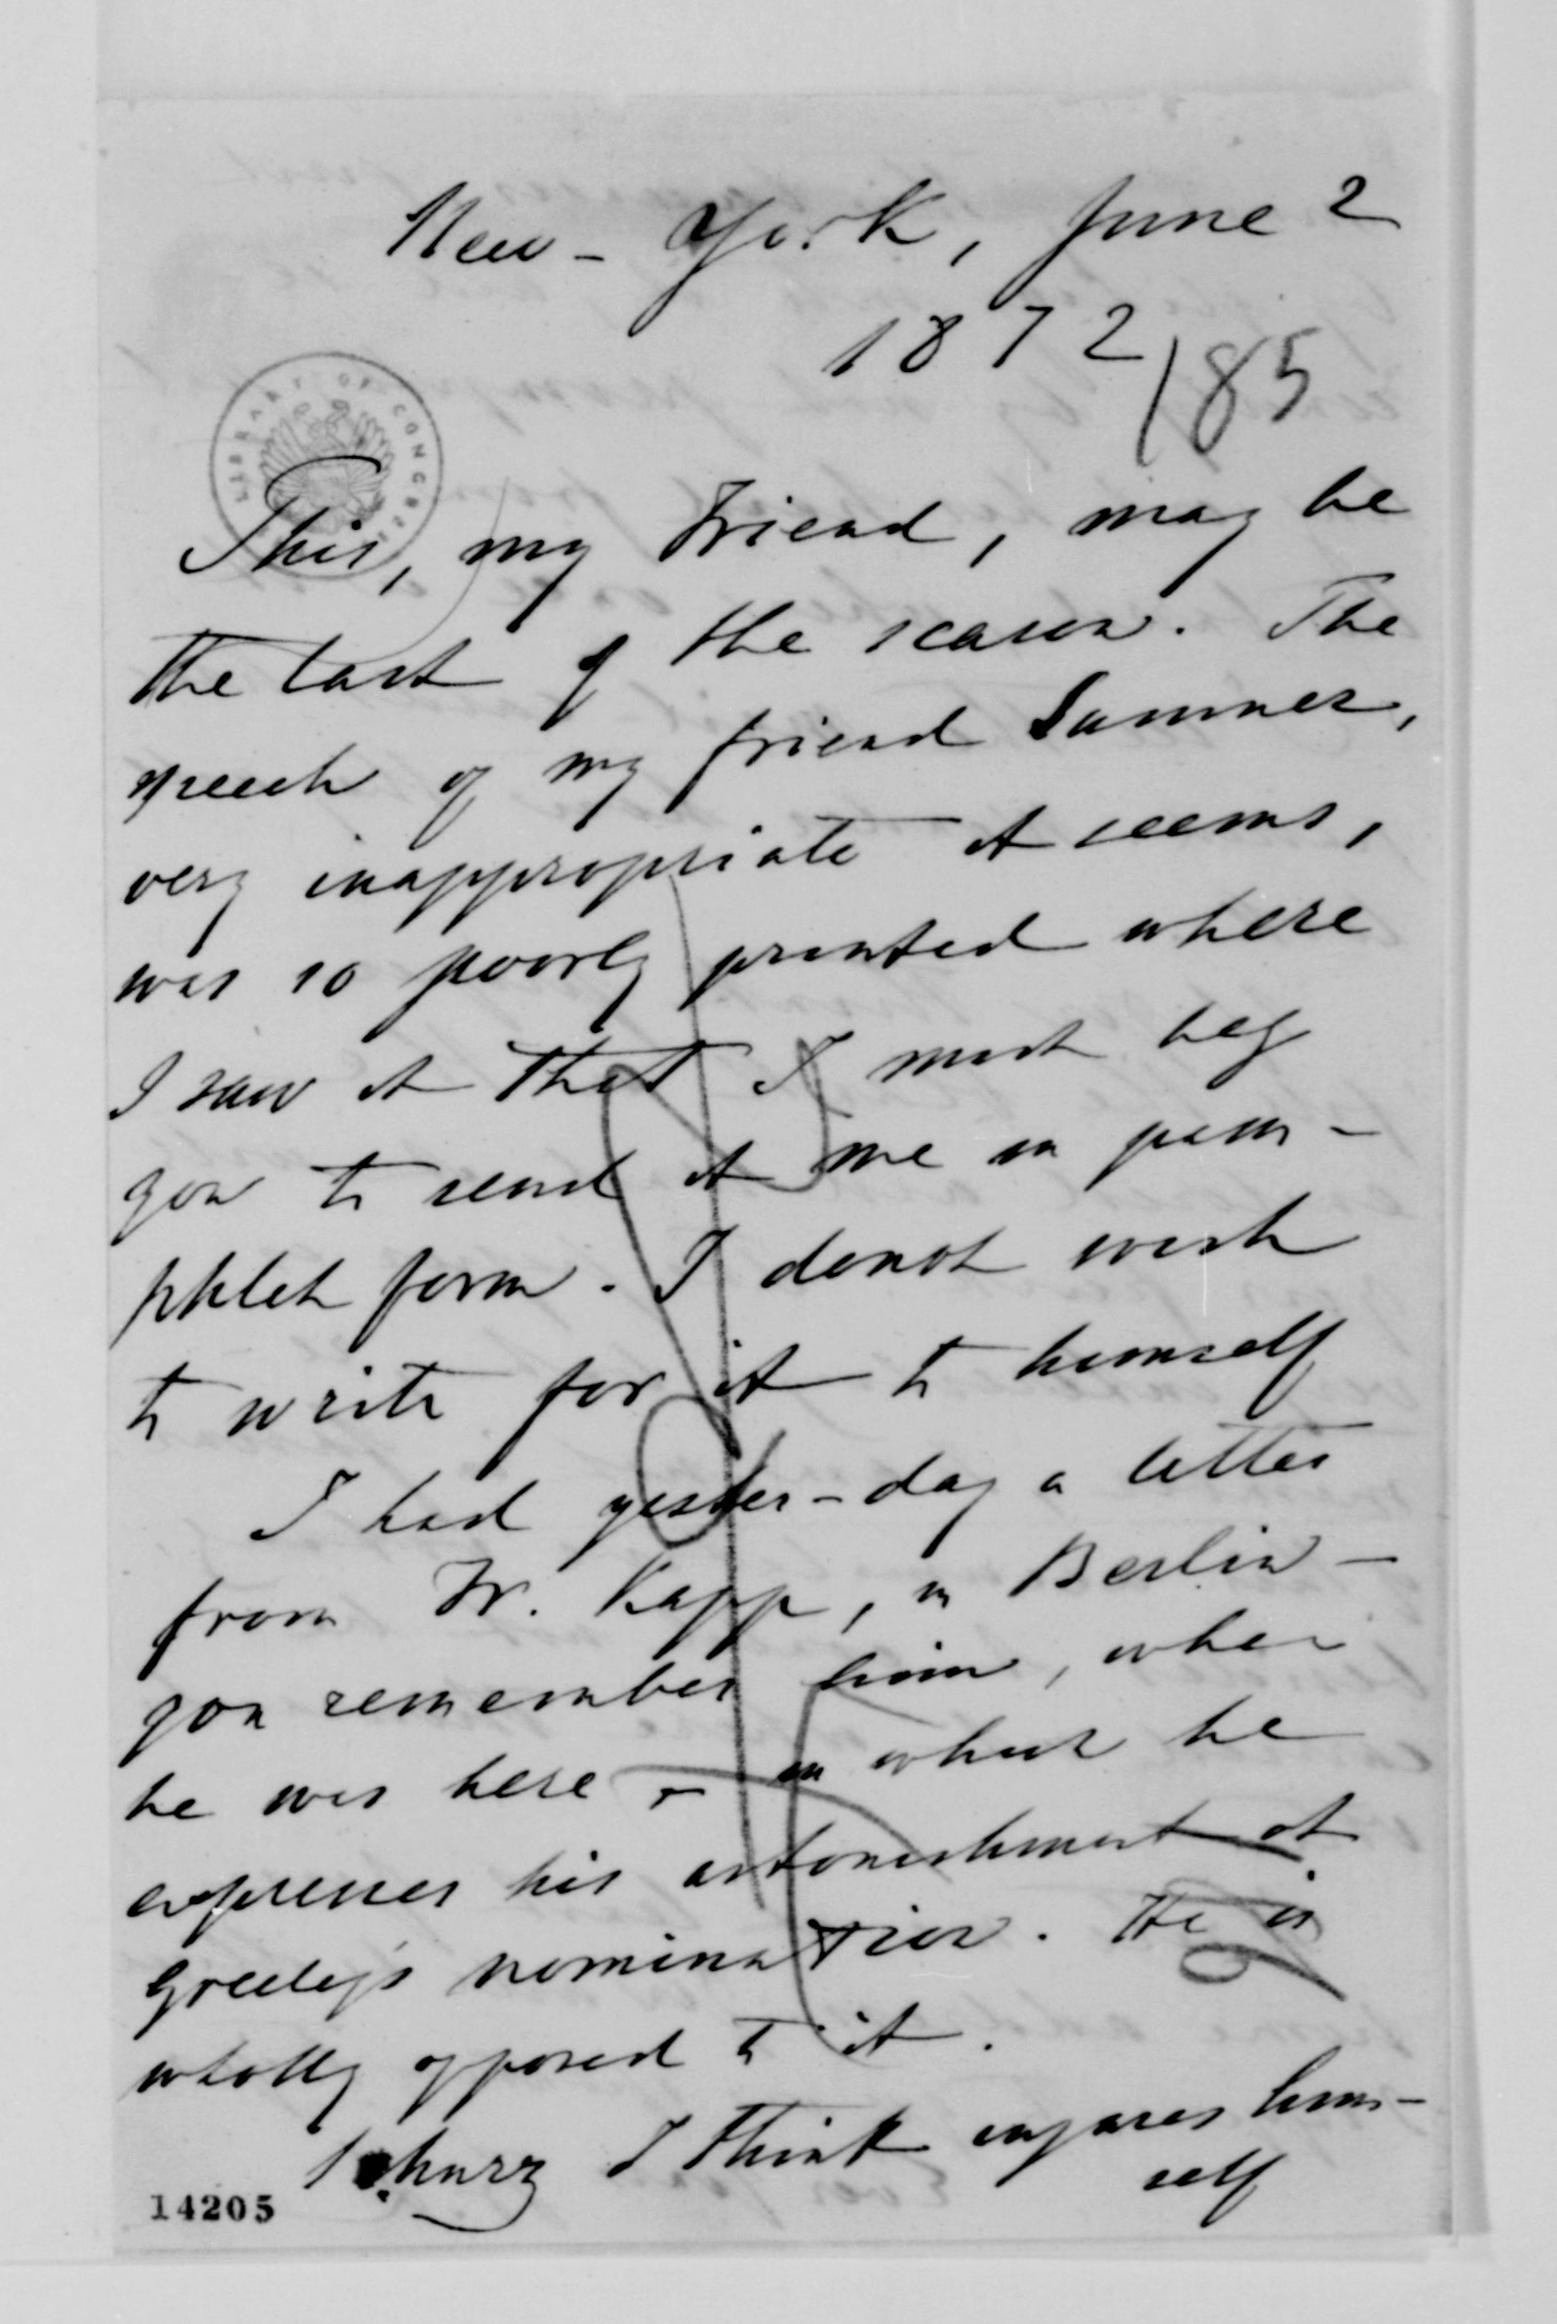 New-York, June 2
1872
185
LIBRARY OF CONGRESS
This, my Friend, may be
the last of the season. The
speech of my friend Sumner,
very inappropriate it seems,
was so poorly printed where
I saw it that I must beg
you to send it me in pam-
phlet form. I donot wish
to write for it to himself
I had yester-day a letter
from Fr. Kapp, in Berlin-
you remember him, when
he was here - in which he
expresses his astonishment at
Greeley's nomination. He is
wholly opposed to it.
Schurz I think injures him-
self
14205